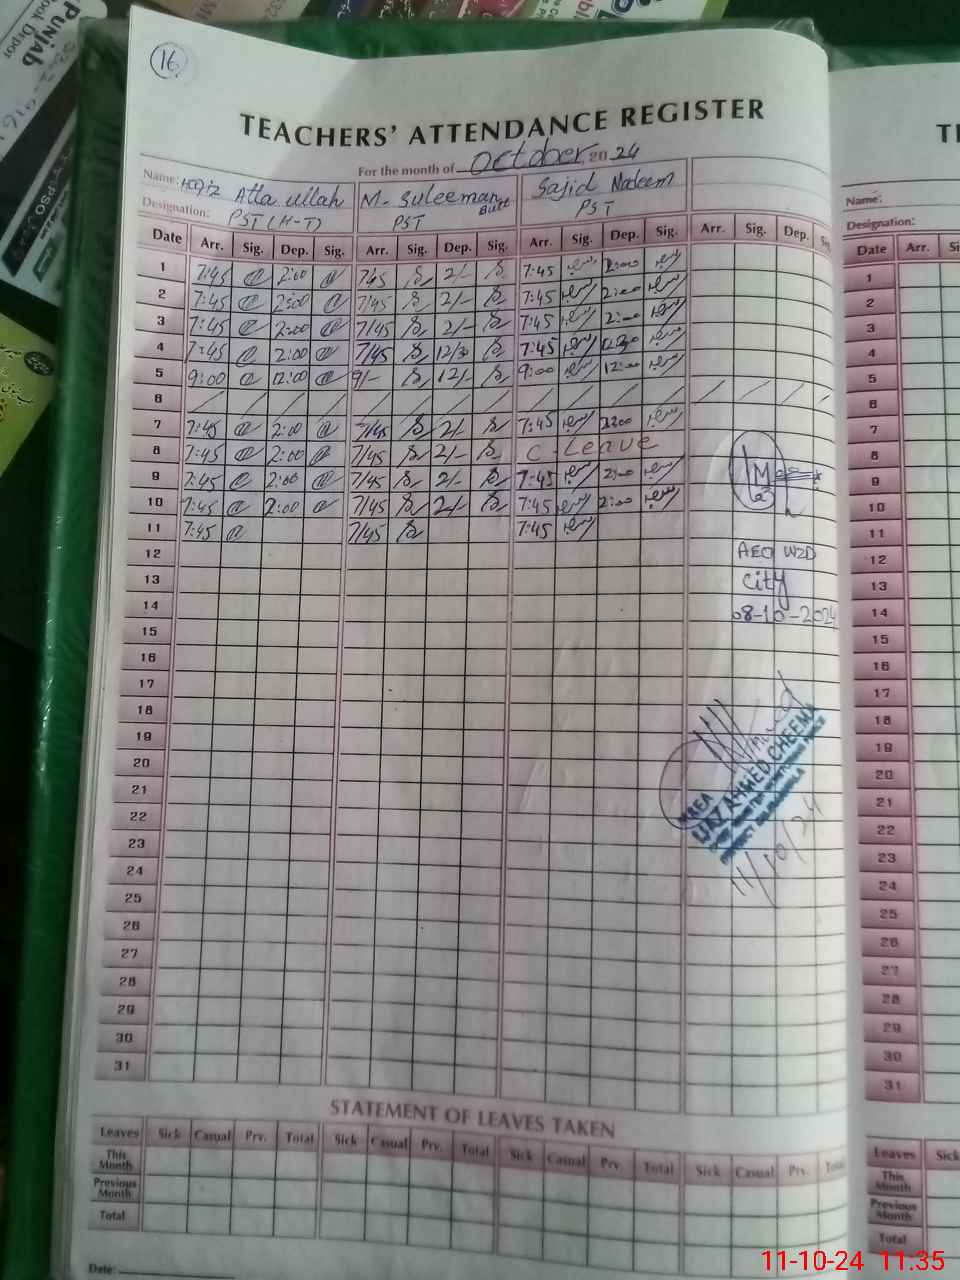 Punjab
Book Depot
16
TEACHERS' ATTENDANCE REGISTER
For the month of October 2024
Name: Hafiz Atta ullah M. Suleeman Butt Sajid Nadeem
Designation: PST (H-T) PST PST
Date Arr. Sig. Dep. Sig. Arr. Sig. Dep. Sig. Arr. Sig. Dep. Sig. Arr. Sig. Dep.
1 7:45 2:00 7/45 2/- 7:45 2:00
2 7:45 2:00 7/45 2/- 7:45 2:00
3 7:45 2:00 7/45 2/- 7:45 2:00
4 7:45 2:00 7/45 12/30 7:45
5 9:00 12:00 9/- 12/- 9:00 12:00
6 / / / / / / / / / / / / / / / /
7 7:45 2:00 7/45 2/- 7:45 2:00
8 7:45 2:00 7/45 2/- C. Leave
9 7:45 2:00 7/45 2/- 7:45 2:00
10 7:45 2:00 7/45 2/- 7:45 2:00
11 7:45 7/45 7:45
12 AEO WZD
13 City
14 08-10-2024
15
16
17
18
19
20
21
22
23
24
25
26
27
28
29
30
31
AHMED CHEEMA
11/10/24
STATEMENT OF LEAVES TAKEN
Leaves Sick Casual Prv. Total Sick Casual Prv. Total Sick Casual Prv. Total Sick Casual Prv. Total
This Month
Previous Month
Total
Date:
Name:
Designation:
Date Arr.
1
2
3
4
5
6
7
8
9
10
11
12
13
14
15
16
17
18
19
20
21
22
23
24
25
26
27
28
29
30
31
Leaves Sick
This Month
Previous Month
Total
11-10-24 11:35